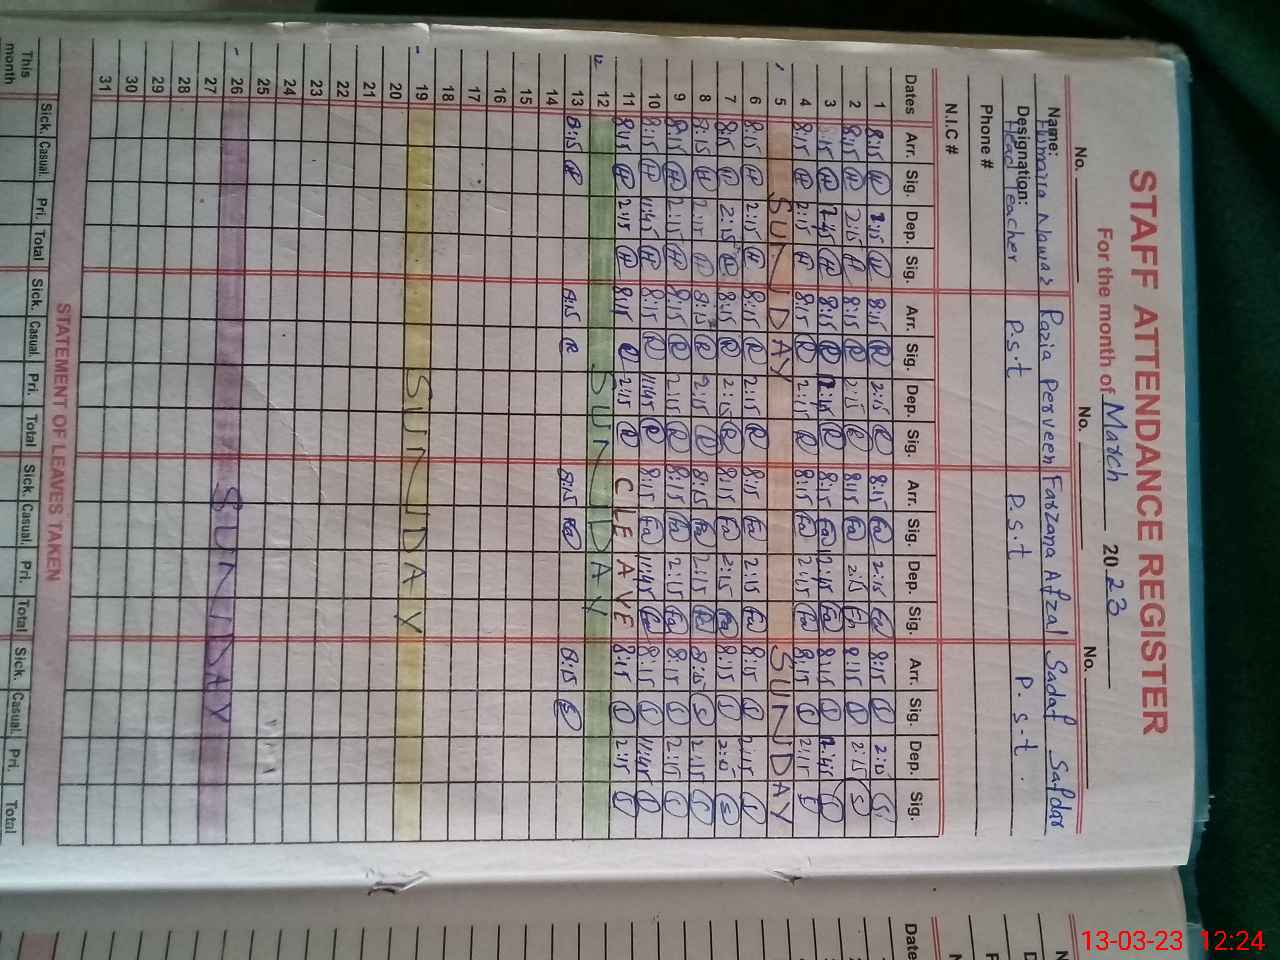 STAFF ATTENDANCE REGISTER
For the month of March 2023
No. No. No.
Name: Humaira Nawaz Razia Perveen Farzana Afzal Sadaf Safdar
Designation: Head Teacher P.S.T P.S.T P.S.T.
Phone #
N.I.C #
Dates Arr. Sig. Dep. Sig. Arr. Sig. Dep. Sig. Arr. Sig. Dep. Sig. Arr. Sig. Dep. Sig.
1 8:15 H 2:15 H 8:15 R 2:15 R 8:15 Fa 2:15 Fa 8:15 2:15
2 8:15 H 2:15 H 8:15 R 2:15 R 8:15 Fa 2:15 8:15 2:15 S
3 8:15 H 2:45 H 8:15 R 8:15 Fa 2:45 Fa 8:15 2:45
4 8:15 H 2:15 H 8:15 R 2:15 R 8:15 Fa 2:15 Fa 8:15 2:15
5 SUNDAY SUNDAY
6 8:15 H 2:15 H 8:15 R 2:15 R 8:15 Fa 2:15 Fa 8:15 2:15
7 8:15 H 2:15 H 8:15 R 2:15 R 8:15 Fa 2:15 Fa 8:15 2:15 S
8 8:15 H 2:15 H 8:15 R 2:15 R 8:15 Fa 2:15 Fa 8:15 S 2:15
9 8:15 H 2:15 H 8:15 R 2:15 R 8:15 Fa 2:15 Fa 8:15 2:15
10 8:15 H 11:45 H 8:15 R 11:45 R 8:15 Fa 11:45 Fa 8:15 11:45
11 8:15 H 2:15 H 8:15 R 2:15 R C LEAVE 8:15 2:15
12 SUNDAY
13 8:15 H 8:15 R 8:15 Fa 8:15 S
14
15
16
17
18
19 SUNDAY
20
21
22
23
24
25
26 SUNDAY
27
28
29
30
31
STATEMENT OF LEAVES TAKEN
Sick. Casual. Pri. Total Sick. Casual. Pri. Total Sick. Casual. Pri. Total Sick. Casual. Pri. Total
This month
Date
13-03-23 12:24